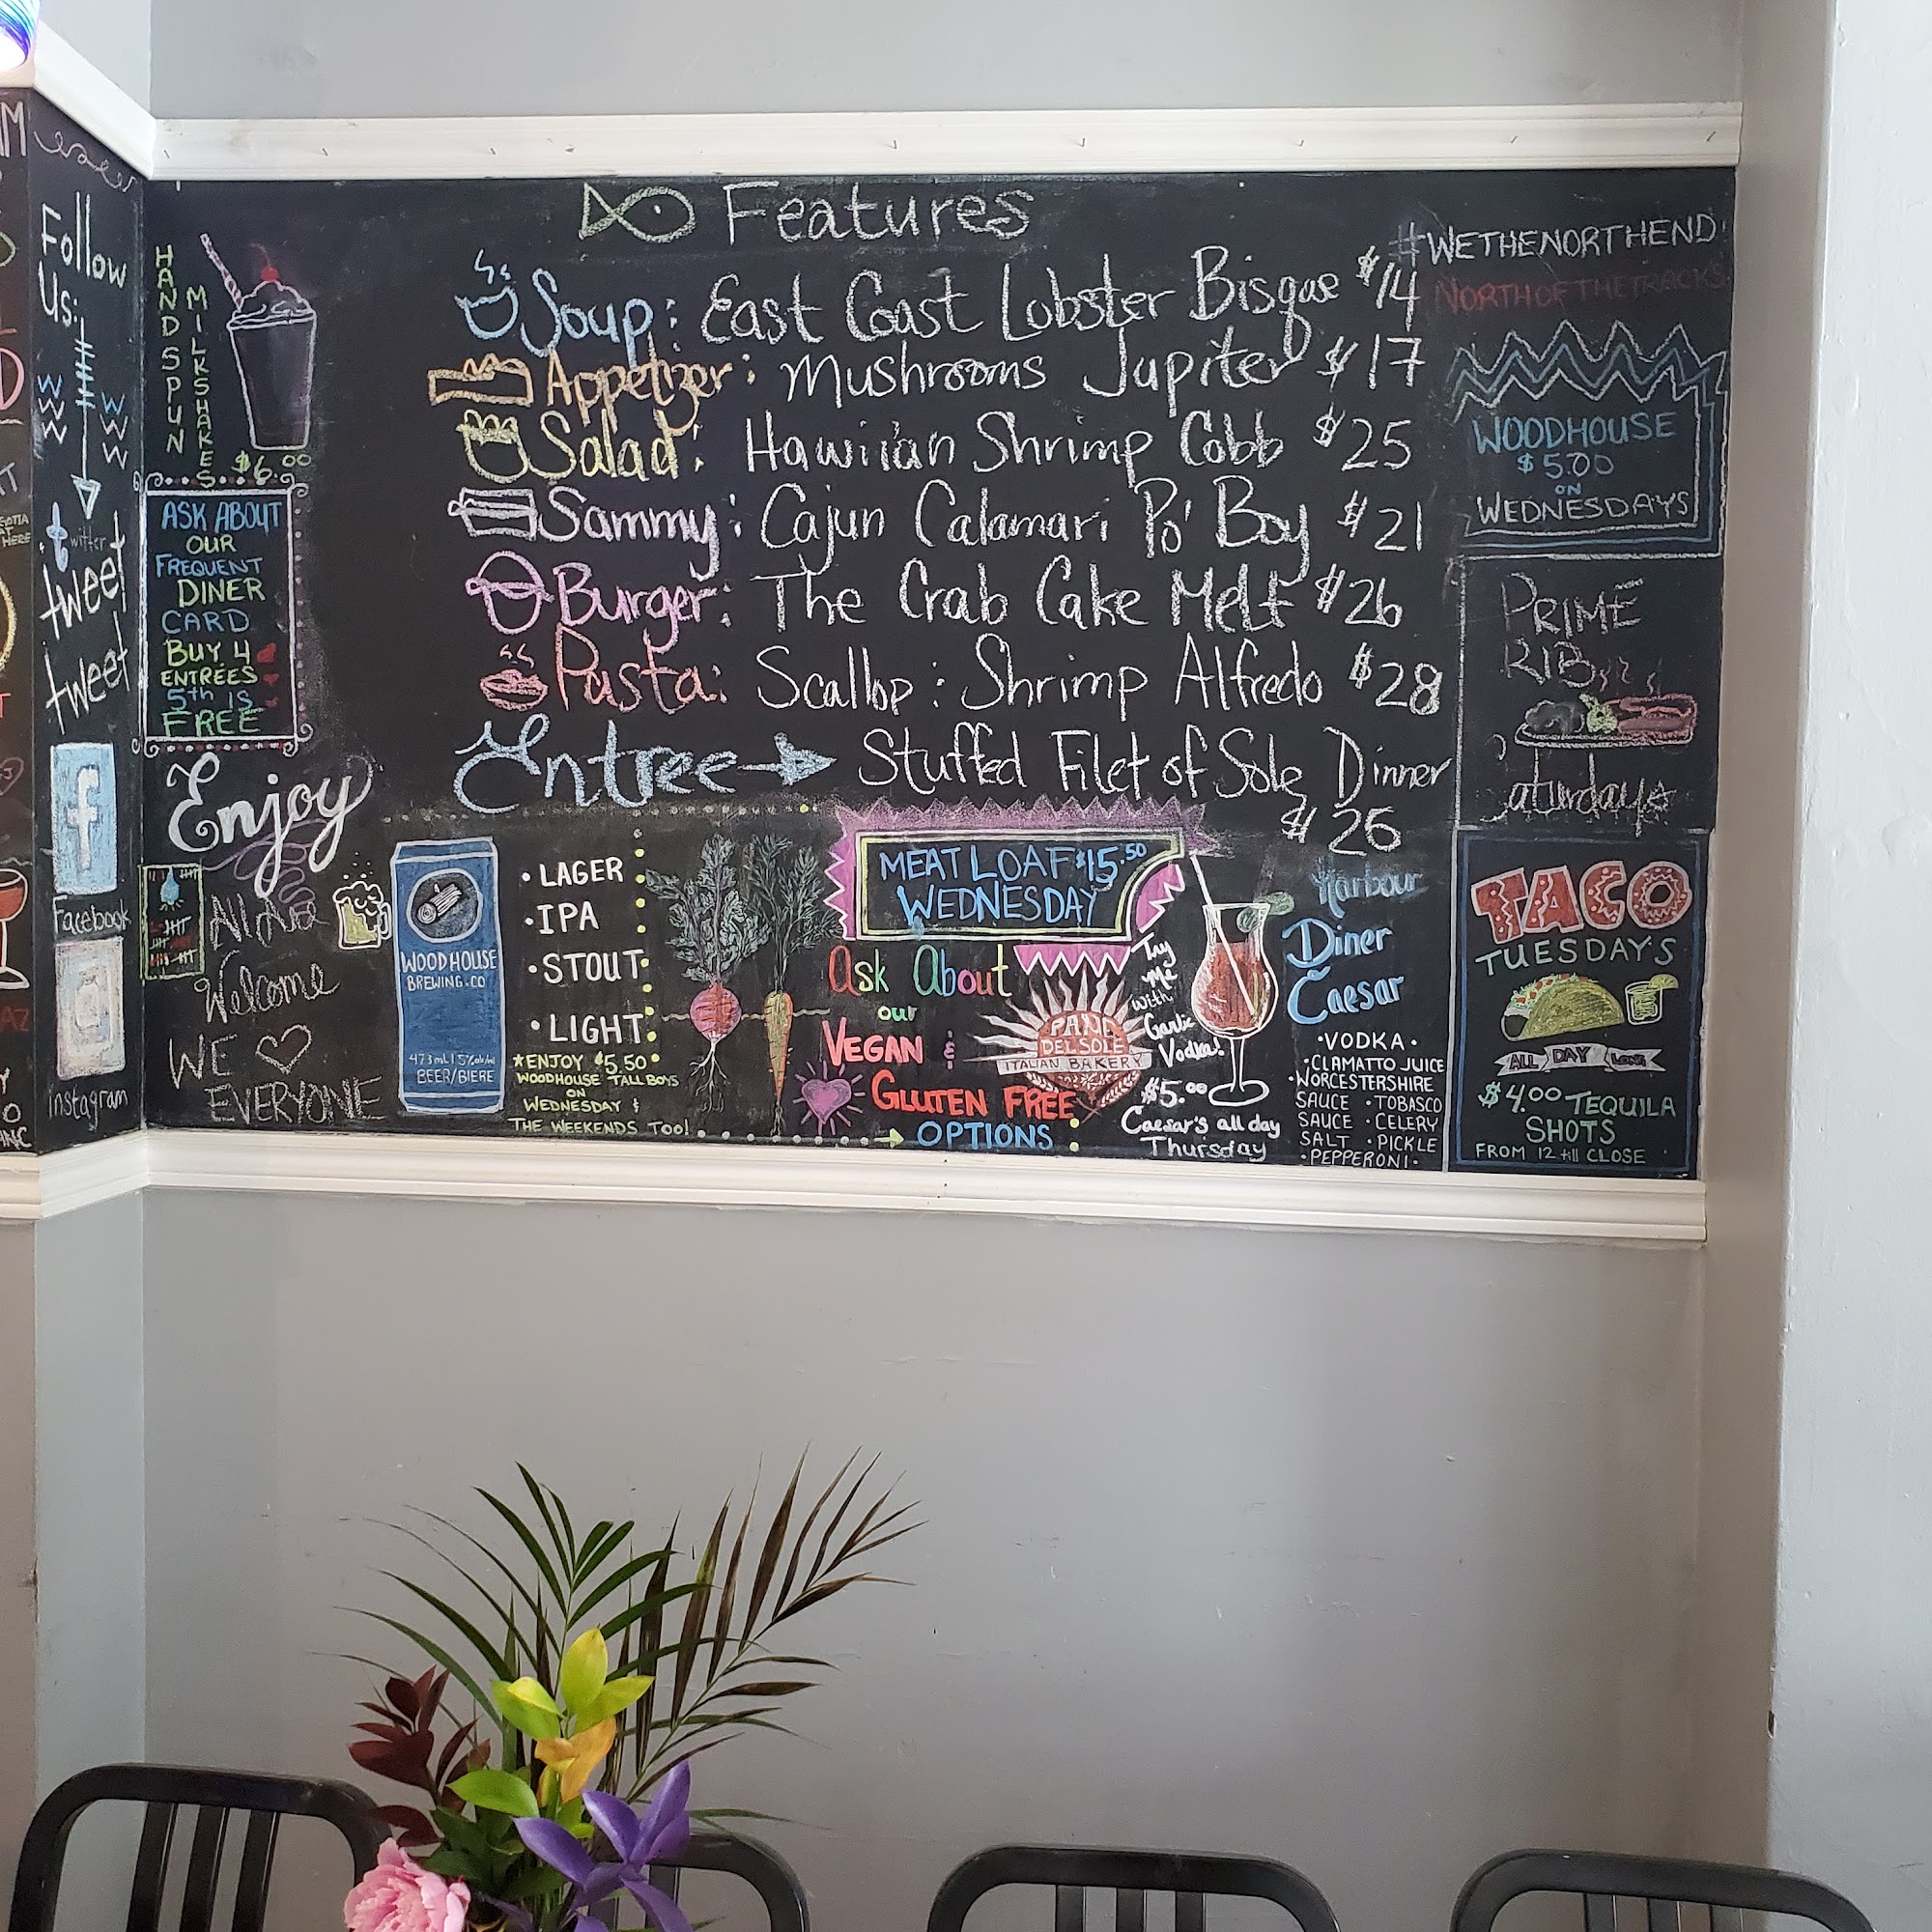 Follow
Us:
twitter
tweet
tweet
Facebook
instagram
HAND SPUN
MILKSHAKES
$6.00
ASK ABOUT
OUR
FREQUENT
DINER
CARD
BUY 4
ENTRÉES
5th IS
FREE
Enjoy
All Are
Welcome
WE
EVERYONE
Features
Soup: East Coast Lobster Bisque $14
Appetizer: Mushrooms Jupiter $17
Salad: Hawiian Shrimp Cobb $25
Sammy: Cajun Calamari Po' Boy $21
Burger: The Crab Cake Melt $26
Pasta: Scallop : Shrimp Alfredo $28
Entree Stuffed Filet of Sole Dinner
$26
WOODHOUSE
BREWING.CO
473mL
BEER/BIERE
• LAGER
• IPA
• STOUT
• LIGHT
ENJOY $5.50
WOODHOUSE TALL BOYS
ON
WEDNESDAY &
THE WEEKENDS TOO!
MEAT LOAF $15.50
WEDNESDAY
Ask About
our
VEGAN &
GLUTEN FREE
OPTIONS
PANE
DEL SOLE
ITALIAN BAKERY
Try
Me
with
Garlic
Vodka!
$5.00
Caesar's all day
Thursday
Harbour
Diner
Caesar
• VODKA •
• CLAMATTO JUICE
• WORCESTERSHIRE
SAUCE • TOBASCO
SAUCE • CELERY
SALT • PICKLE
• PEPPERONI •
#WETHENORTHEND
NORTH OF THE TRACKS
WOODHOUSE
$5.00
ON
WEDNESDAYS
PRIME
RIB
aturdays
TACO
TUESDAYS
ALL DAY LONG
$4.00 TEQUILA
SHOTS
FROM 12 till CLOSE